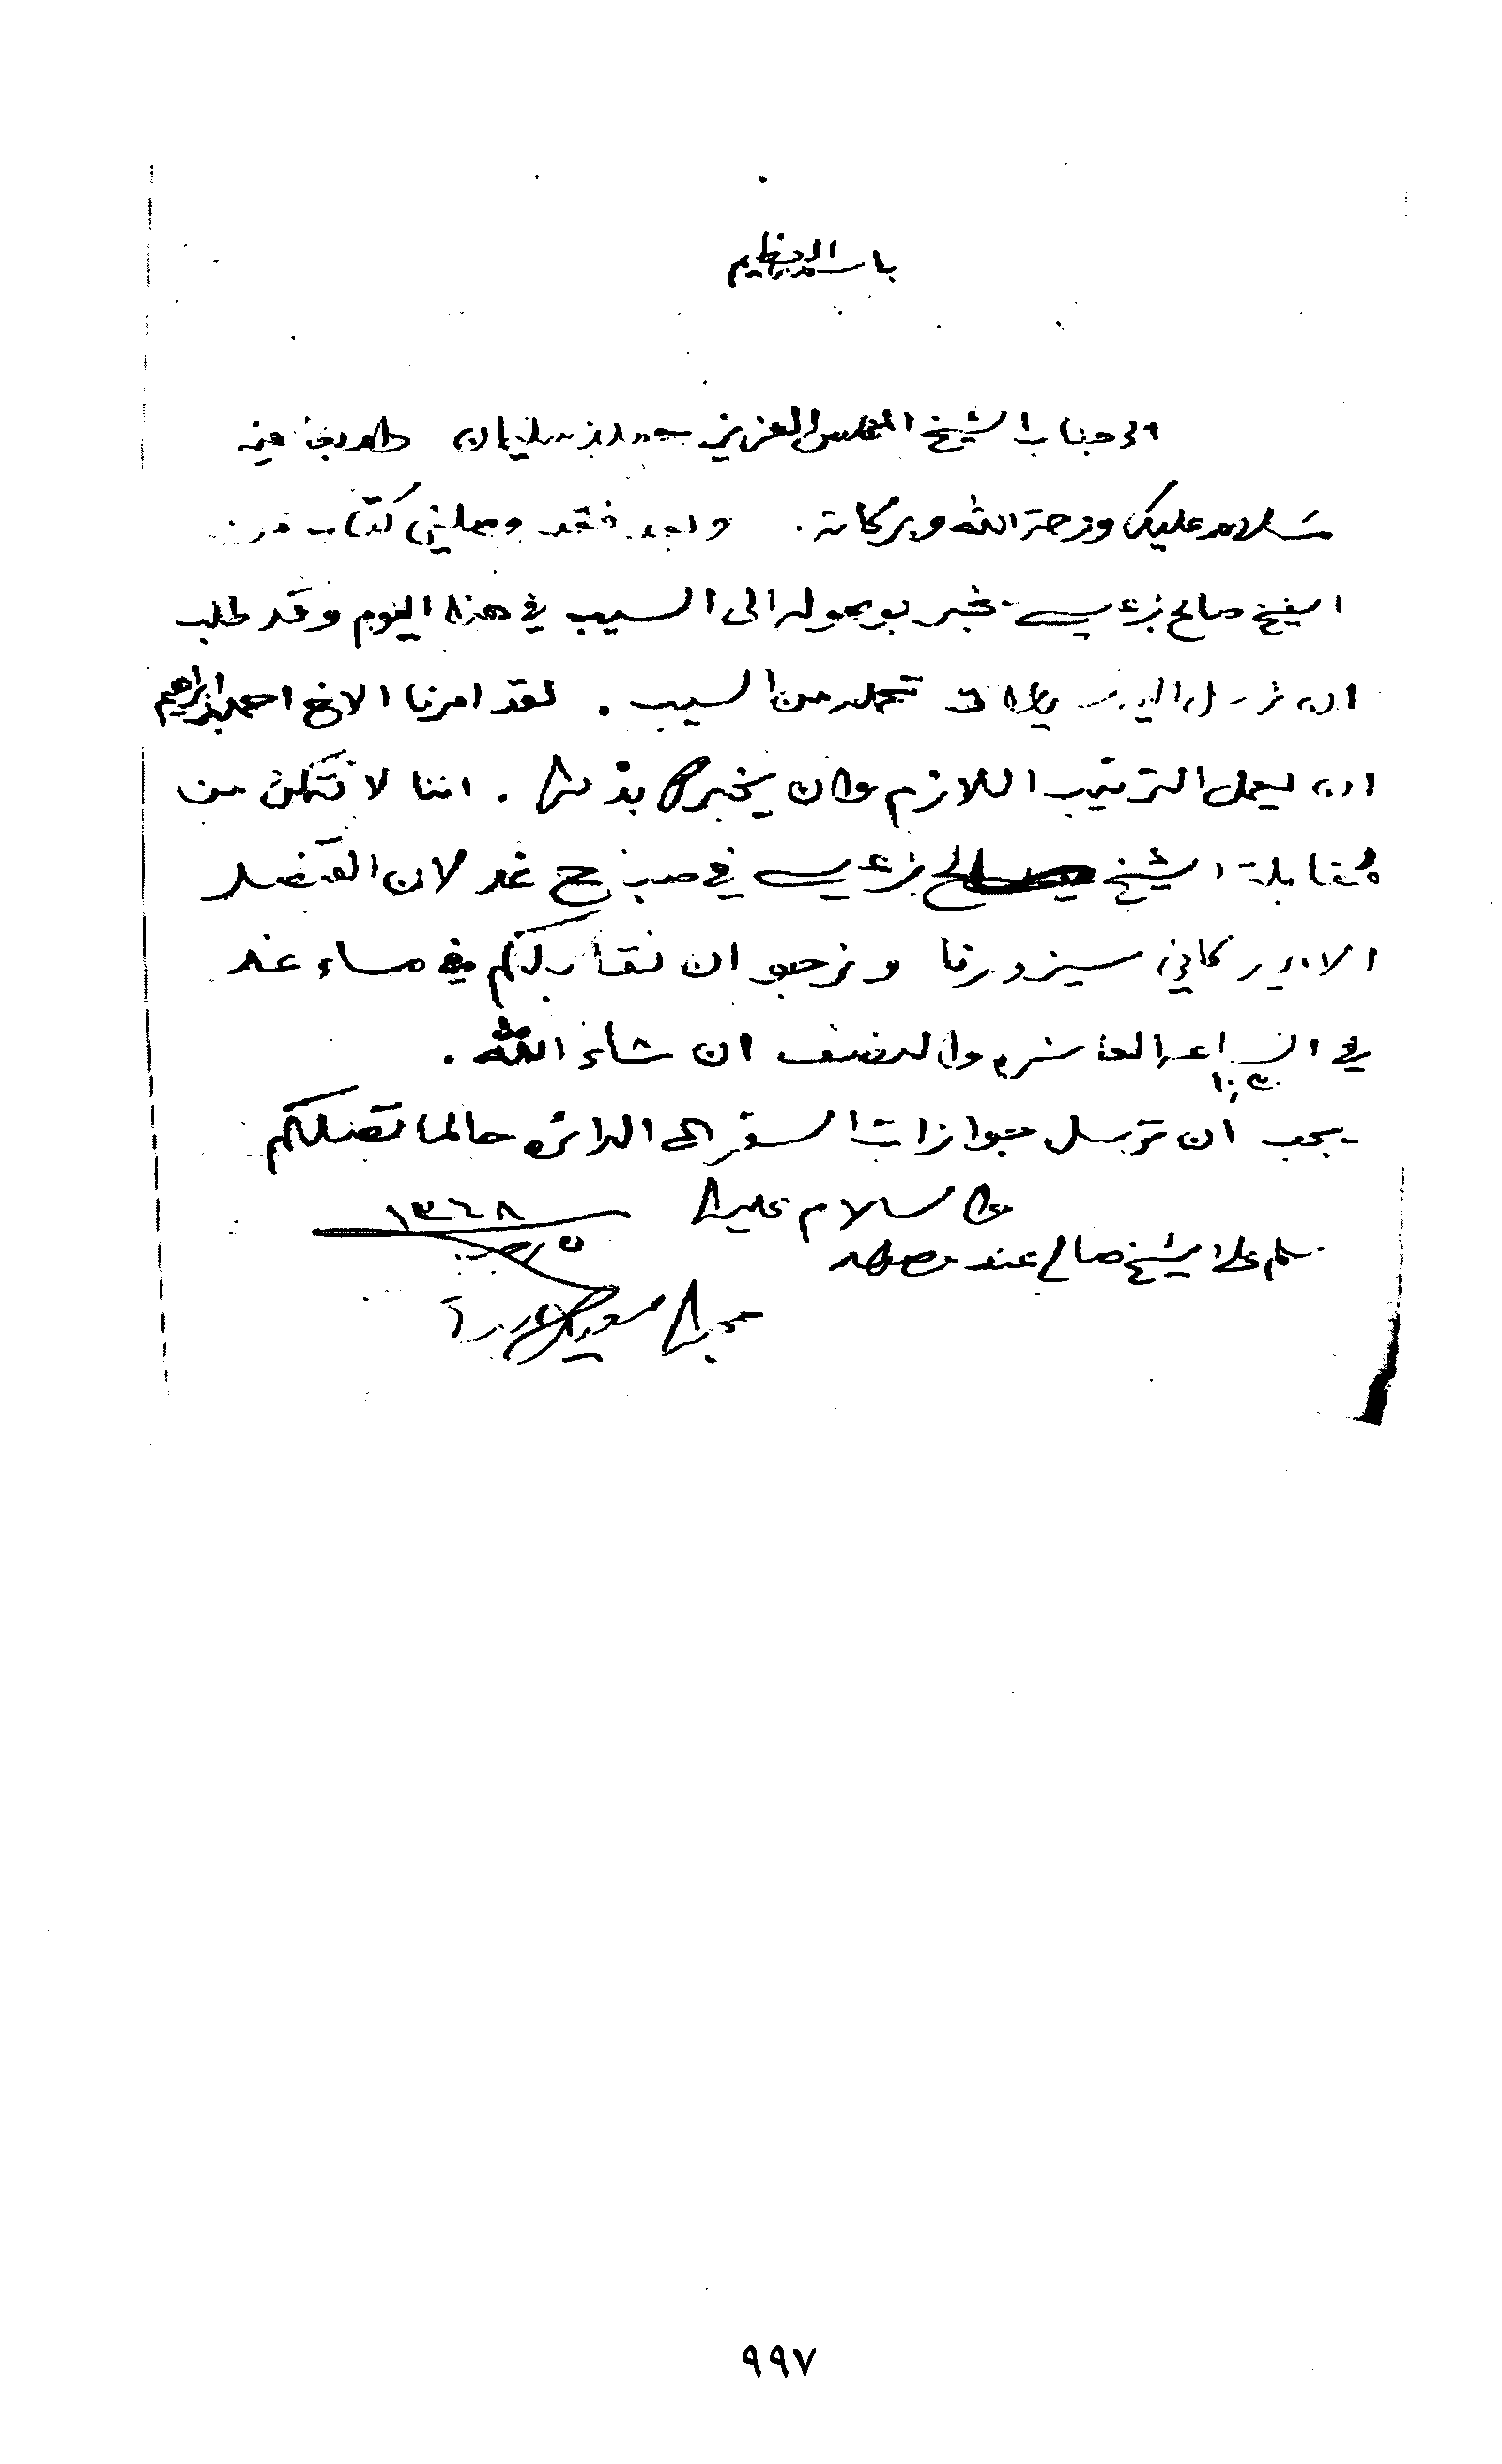 باسم الله العظيم
الى جناب الشيخ المخلص العزيز حمد بن سليمان
سلام عليك ورحمة الله وبركاته. وبعد فقد وصلني كتاب من
الشيخ صالح بن عيسى يخبر بوصوله الى السيب في هذا اليوم وقد طلب
ان نرسل اليه تحمله من السيب. لقد امرنا الاخ احمد بن ابراهيم
ان يعمل الترتيب اللازم وان يخبرك بذلك. اننا لا نتمكن من
مقابلة الشيخ صالح بن عيسى في صباح غد لان القنصل
الامريكاني سيزورنا ونرجو ان نقابلكم في مساء غد
في الساعة العاشرة والنصف ان شاء الله.
١٠،٣٠
يجب ان ترسل جوازات السفر الى الدائرة حالما تصلكم
والسلام عليك
١٣٦٨
سلم على الشيخ صالح عند وصوله
محبك سعيد بن تيمور
٩٩٧